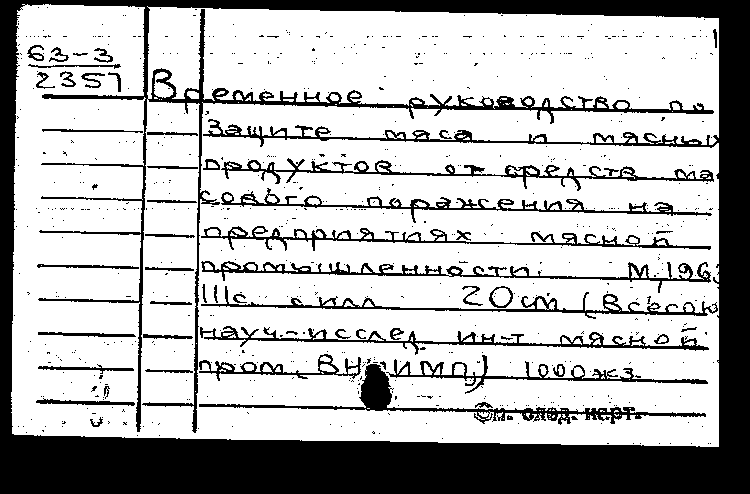 63-3
2351
Временное руководство по
защите мяса и мясных
продуктов от средств мас
сового поражения на
предприятиях мясной
промышленности. М, 1963
111с. с илл 20 см (Всесоюз
науч.-исслед ин-т мясной
пром. ВНИИМП,) 1000 экз.
См. след. карт.